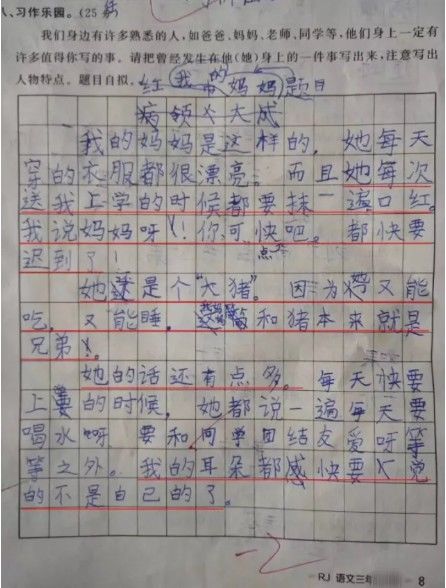 、习作乐园。(25分
我们身边有许多熟悉的人,如爸爸、妈妈、老师、同学等,他们身上一定有
许多值得你写的事。请把曾经发生在他(她)身上的一件事写出来,注意写出
人物特点。题目自拟。
我的妈妈 题目
我的妈妈是这样的,她每天
穿的衣服都很漂亮。而且她每次
送我上学的时候都要抹一遍口红。
我说妈妈呀!你可快点吧。都快要
迟到了!
她还是个“大猪”。因为她又能
吃,又能睡。和猪本来就是
兄弟。
她的话还有点多。每天快要
上学的时候,她都说一遍每天要
喝水呀要和同学团结友爱呀等
等之外。我的耳朵都感快要
的不是自己的了。
-2
RJ 语文三年 8